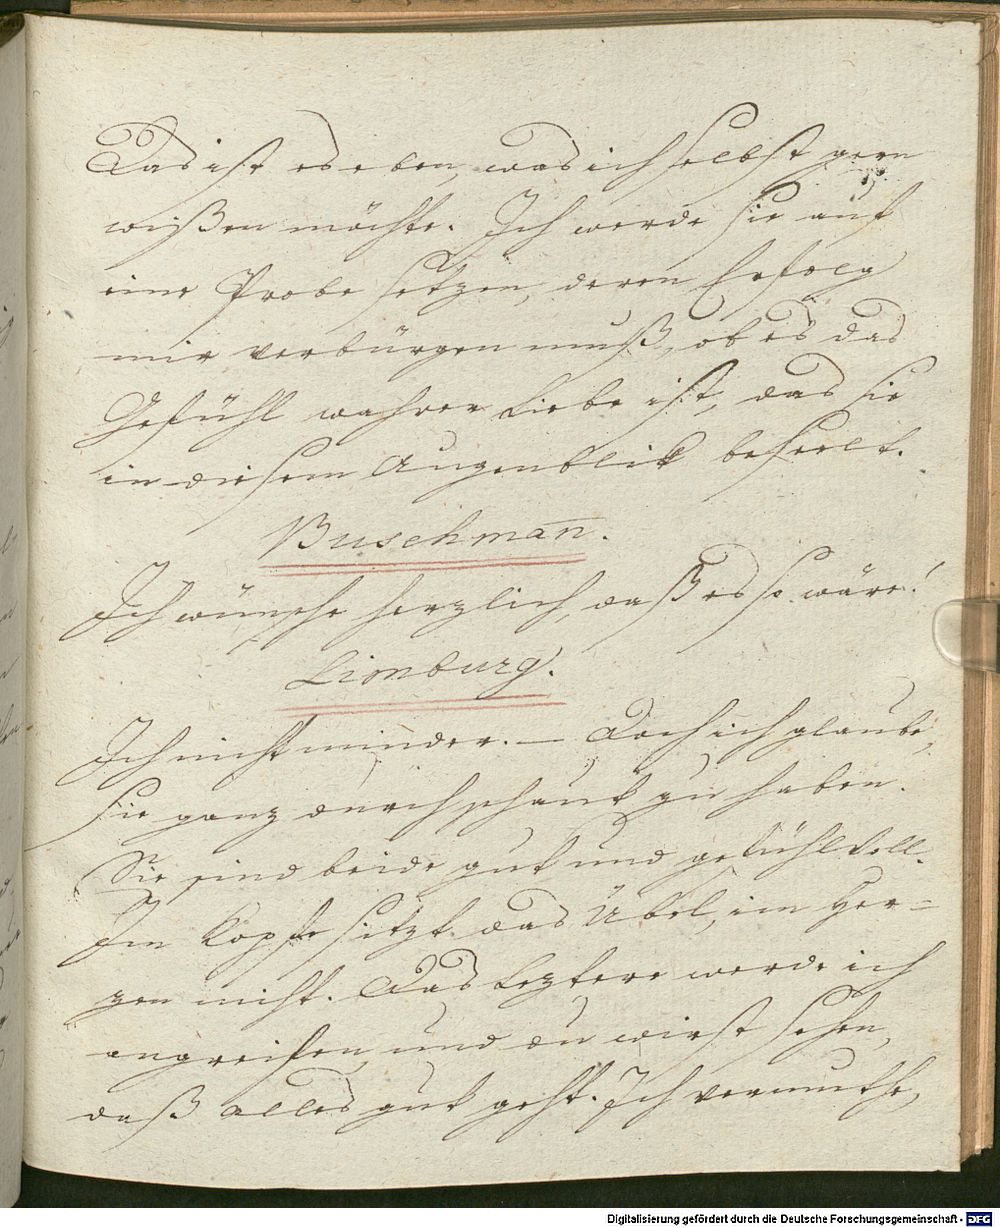 Das ist es eben, was ich selbst gern
wißen möchte. Ich werde sie auf
eine Probe setzen, deren Erfolg
mir verbürgen muß, ob es das
Gefühl wahrer Liebe ist, das sie
in diesem Augenblik beseelt.
Buschman̅.
Ich wünsche herzlich, daß es so wäre!
Limburg.
Ich nicht minder. — Doch ich glaube,
sie ganz durchschaut zu haben.
Sie sind beide gut und gefühlvoll.
Im Kopfe sitzt das Übel, im Her=
zen nicht. Das Leztere werde ich
angreifen, und du wirst sehen,
daß alles gut geht. Ich vermuthe,
Digitalisierung gefördert durch die Deutsche Forschungsgemeinschaft - DFG